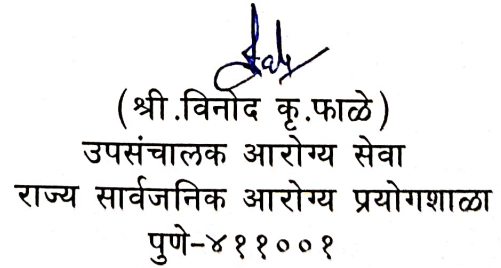 (श्री.विनोद कृ.फाळे)
उपसंचालक आरोग्य सेवा
राज्य सार्वजनिक आरोग्य प्रयोगशाळा
पुणे-४११००१